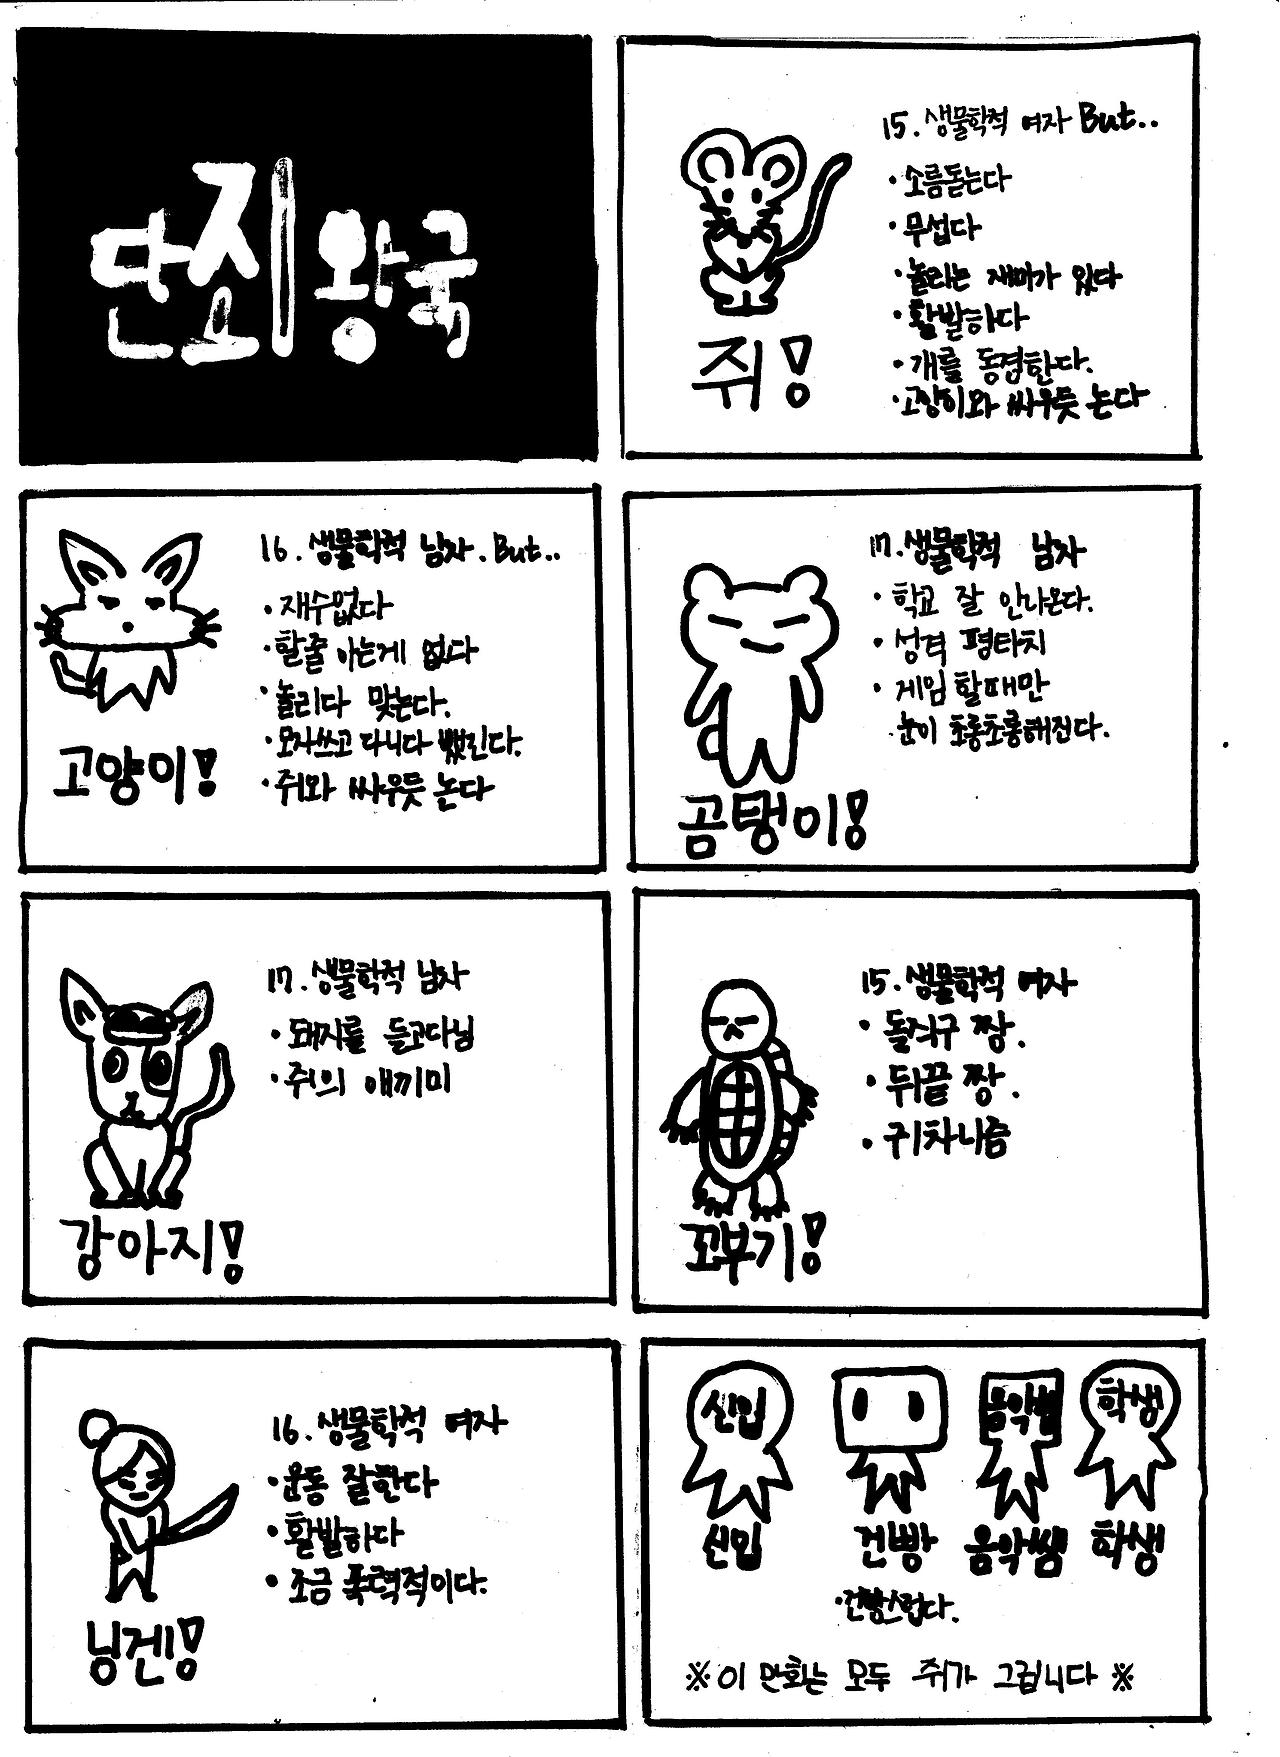 단죄왕국
15. 생물학적 여자 But..
·소름돋는다
·무섭다
·놀리는 재미가 있다
·활발하다
·개를 동경한다.
·고양이와 싸우듯 논다
쥐!
16. 생물학적 남자. But..
·재수없다
·할줄 아는게 없다
·놀리다 맞는다.
·모자쓰고 다니다 뺐긴다.
·쥐와 싸우듯 논다
고양이!
17. 생물학적 남자
·학교 잘 안나온다.
·성격 평타치
·게임 할때만
눈이 초롱초롱해진다.
곰탱이!
17. 생물학적 남자
·돼지를 들고다님
·쥐의 애끼미
강아지!
15. 생물학적 여자
·돌직구 짱.
·뒤끝 짱.
·귀차니즘
꼬부기!
16. 생물학적 여자
·운동 잘한다
·활발하다
·조금 폭력적이다.
닝겐!
신입 음악쌤 학생
신입 건빵 음악쌤 학생
·건빵스럽다.
※이 만화는 모두 쥐가 그립니다※